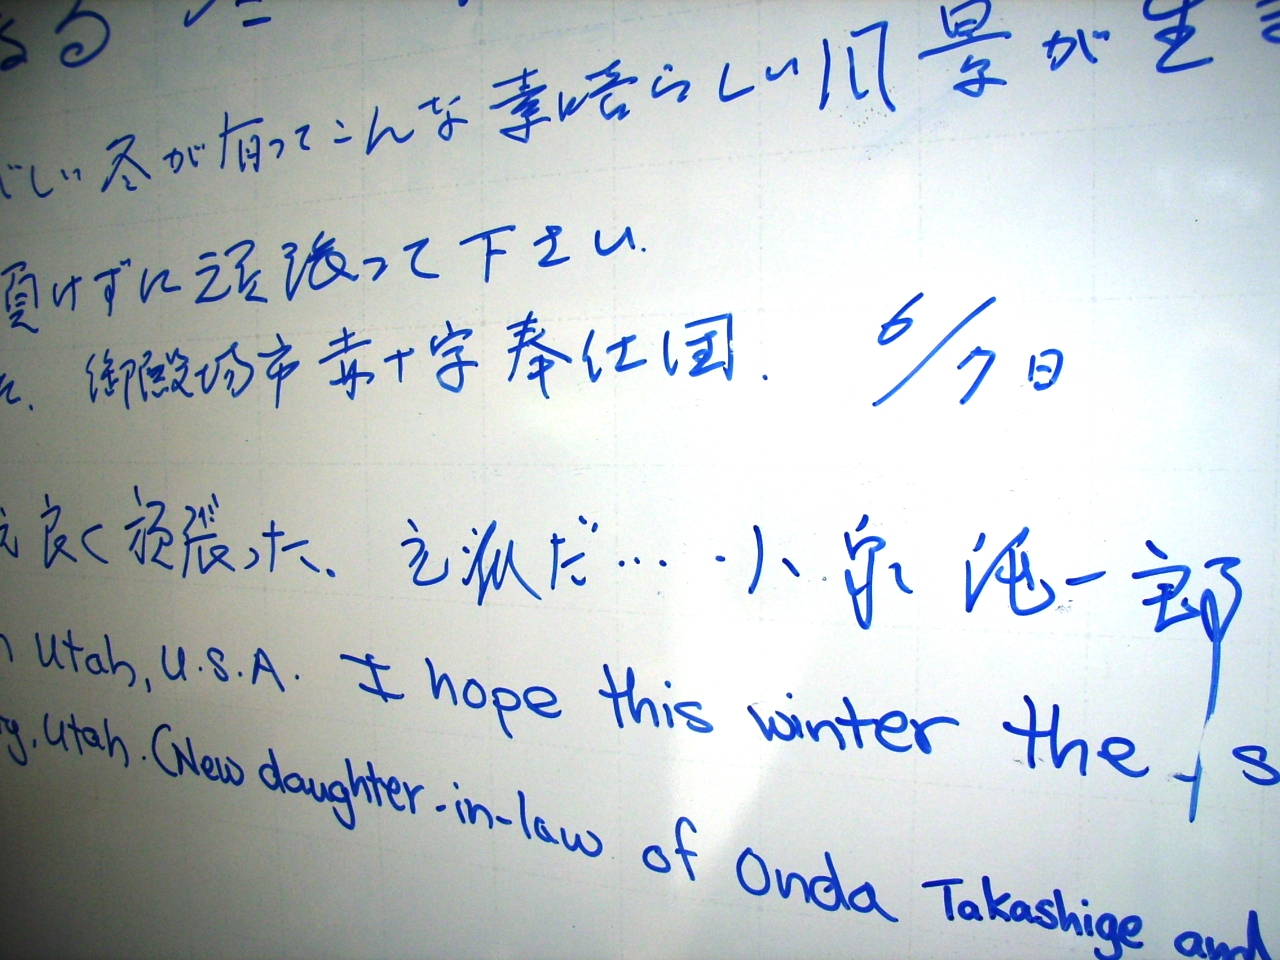 しい冬が有ってこんな素晴らしい景が生
負けずに頑張って下さい.
御殿場市赤十字奉仕団. 6/7日
良く頑張った、立派だ…・小泉純一郎
Utah, U.S.A. I hope this winter the s
Utah. (New daughter-in-law of Onda Takashige and